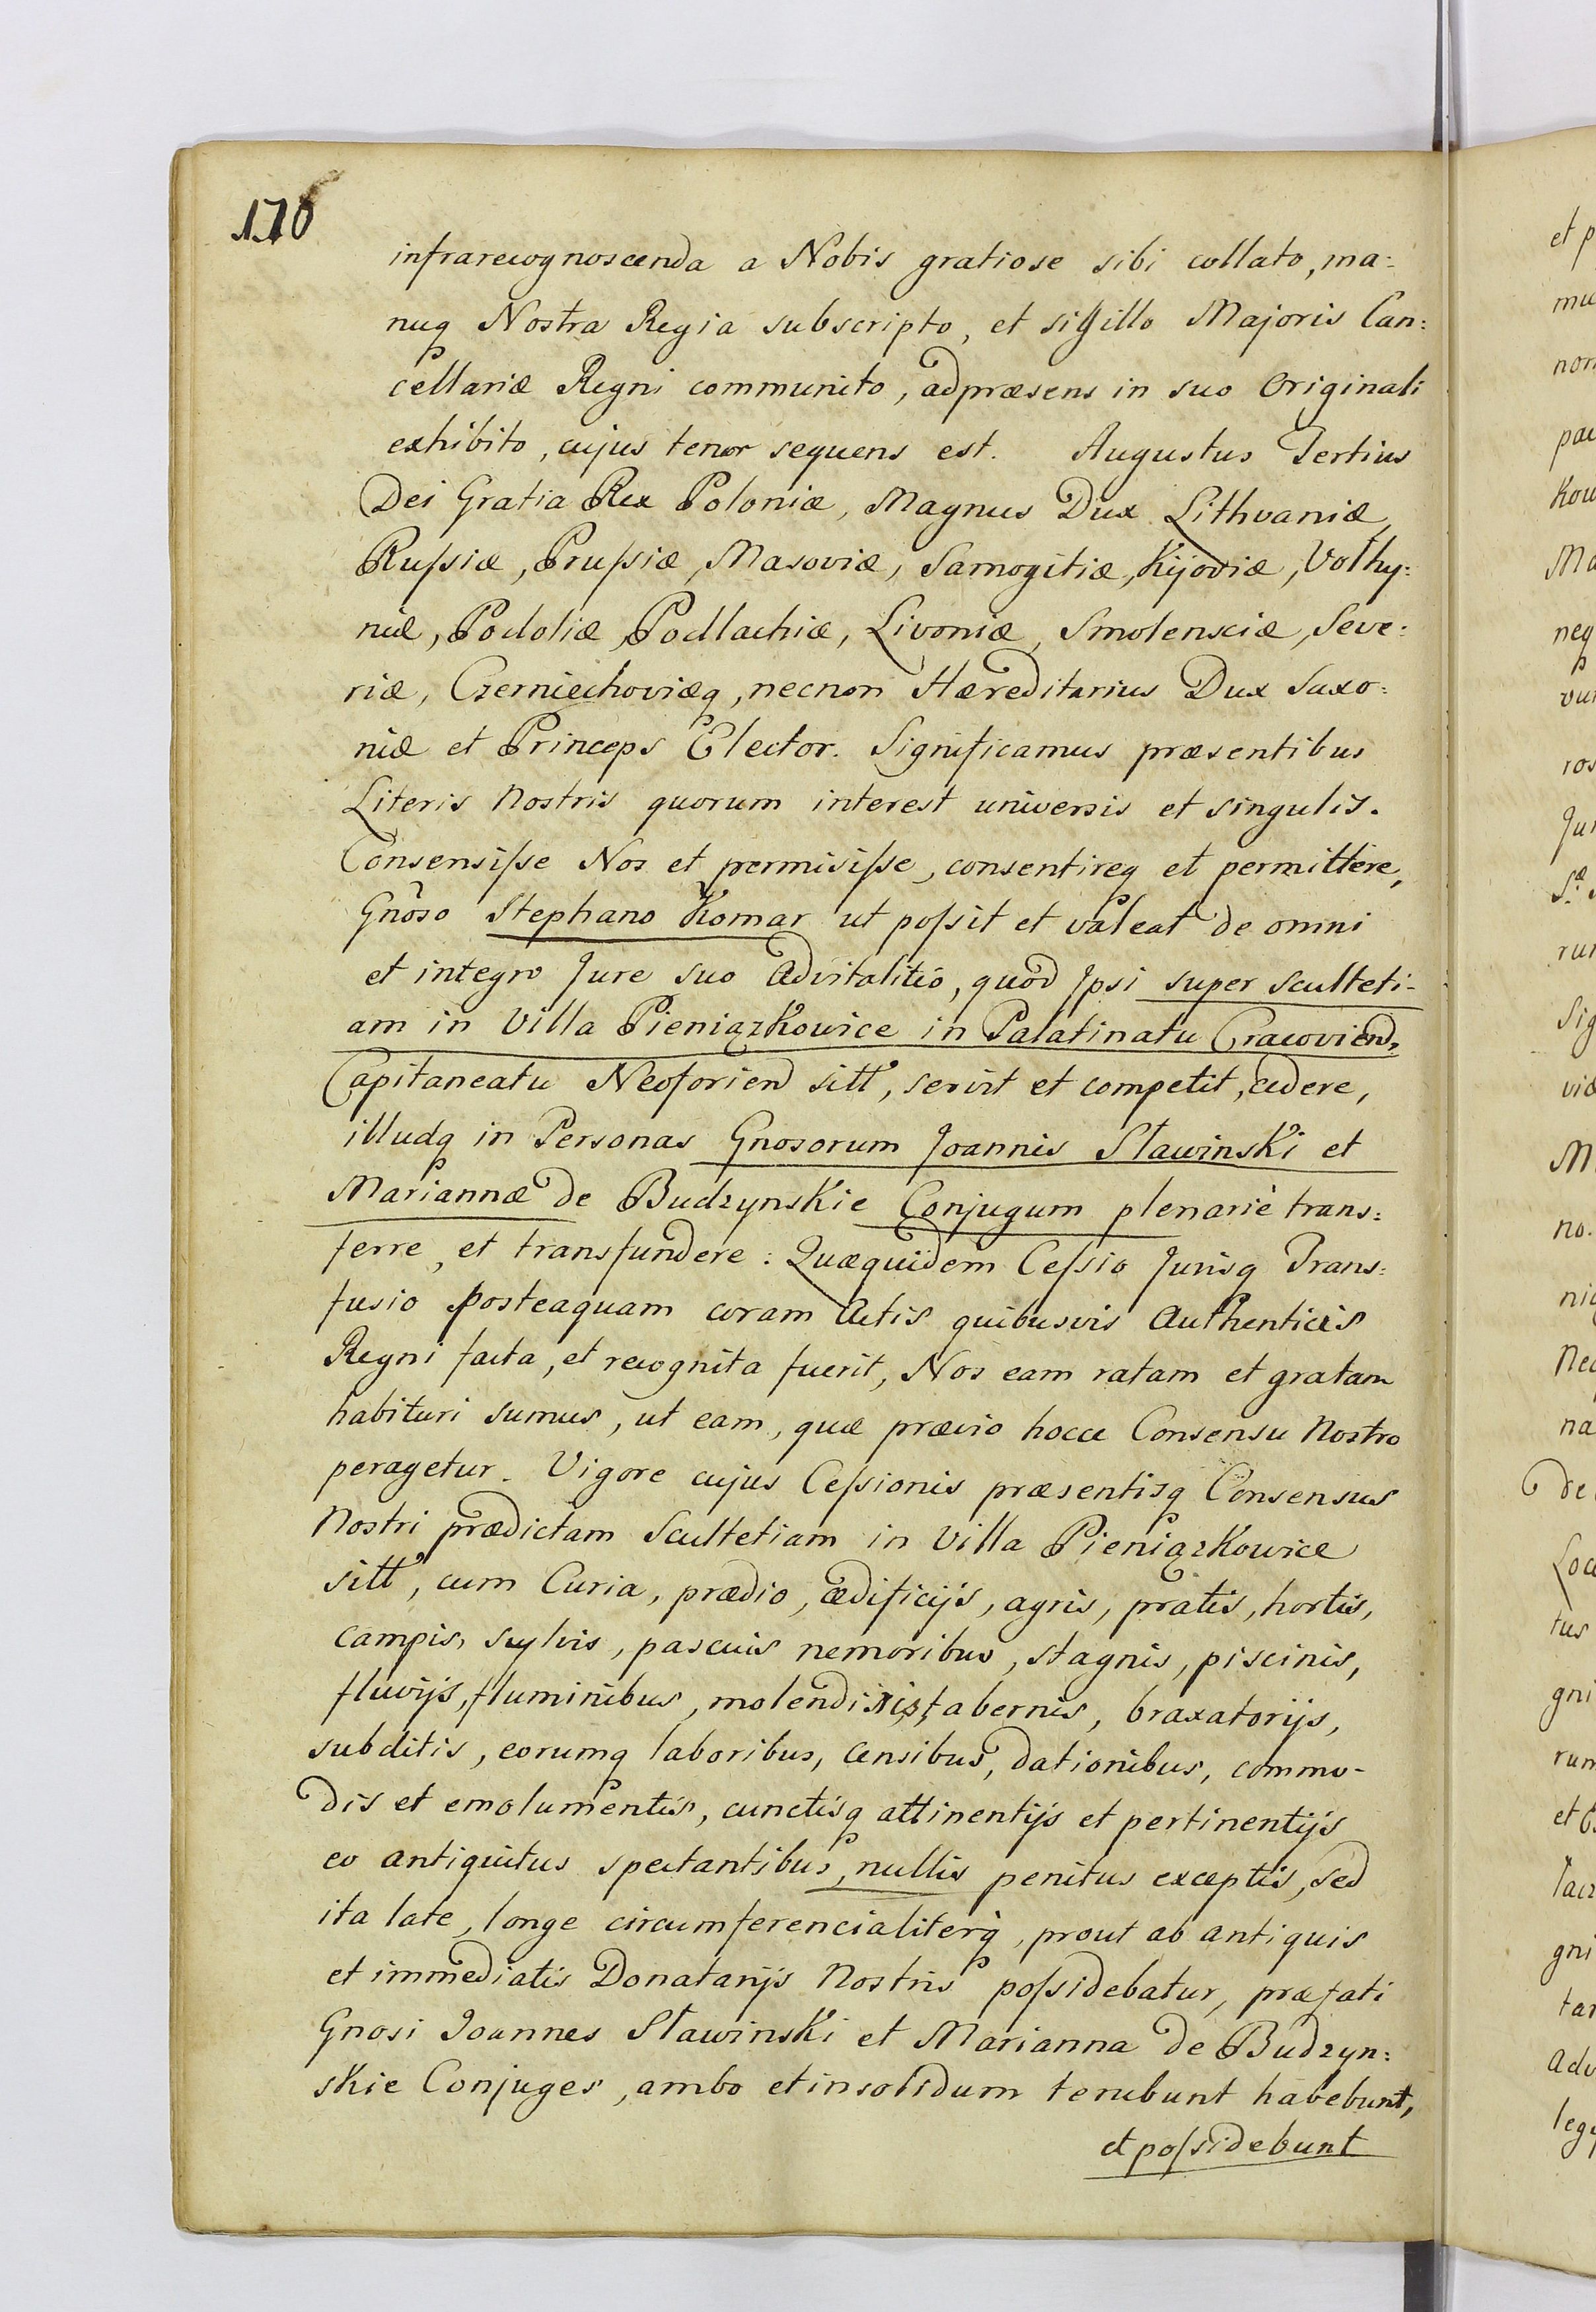 170
infrarecognoscenda a Nobis gratiose sibi collato, ma:
nuq Nostra Regia subscripto, et sigillo Majoris Can:
cellariæ Regni communito, adpræsens in suo Originali
exhibito, cujus tenor sequens est. Augustus Tertius
Dei Gratia Rex Poloniæ, Magnus Dux Lithvaniæ,
Rußiæ, Prußiæ, Masoviæ, Samogitiæ, Kijoviæ, Volhy:
niæ, Podoliæ, Podlachiæ, Livoniæ, Smolensciæ, Seve:
riæ, Czerniechoviæq, necnon Hæreditarius Dux Saxo:
niæ et Princeps Elector. Significamus præsentibus
Literis Nostris quorum interest universis et singulis.
Consensiße Nos et permisiße, consentireq et permittere,
Gnõso Stephano Komar ut poßit et valeat de omni
et integro Jure suo advitalitio, quod Ipsi super Sculteti-
am in Villa Pieniązkowice in Palatinatu Cracovien,
Capitaneatu Neoforien sitt, servit et competit, cedere,
illudq in Personas Gnosorum Joannis Sławinski et
Mariannæ de Budzynskie Conjugum plenariè trans:
ferre, et transfundere: Quæquidem Ceßio Jurisq Trans:
fusio posteaquam coram Actis quibusvis Authenticis
Regni facta, et recognita fuerit, Nos eam ratam et gratam
habituri sumus, ut eam, quæ prævio hocce Consensu Nostro
peragetur. Vigore cujus Ceßionis præsentisq Consensus
Nostri prædictam Scultetiam in Villa Pieniązkowice
sitt, cum Curia, prædio, ædificijs, agris, pratis, hortis,
campis, sylvis, pascuis nemoribus, stagnis, piscinis,
fluvijs, fluminibus, molendinis, tabernis, braxatorijs,
subditis, eorumq laboribus, censibus, dationibus, commo-
dis et emolumentis, cunctisq attinentijs et pertinentijs
eo antiquitus spectantibus, nullis penitus exceptis, sed
ita late, longe circumferencialiterq, prout ab antiquis
et immediatis Donatarijs Nostris poßidebatur, præfati
Gnosi Joannes Sławinski et Marianna de Budzyn:
skie Conjuges, ambo et insolidum tenebunt habebunt,
et poßidebunt